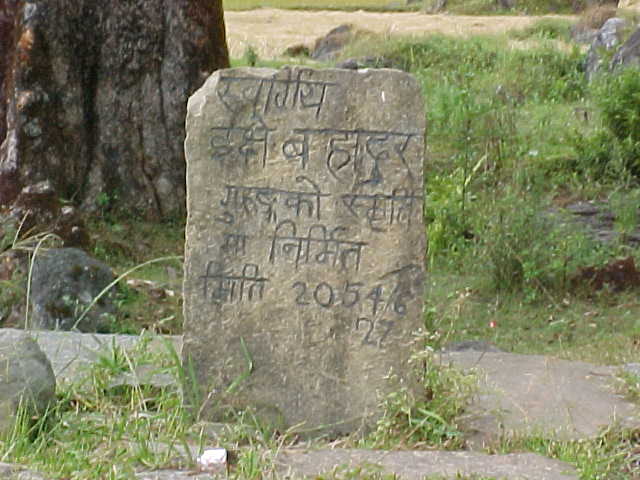 स्वर्गीय
ईन्द्र बहादुर
गुरुङ्गको स्मृति
मा निर्मित
मिति 2054/6
27